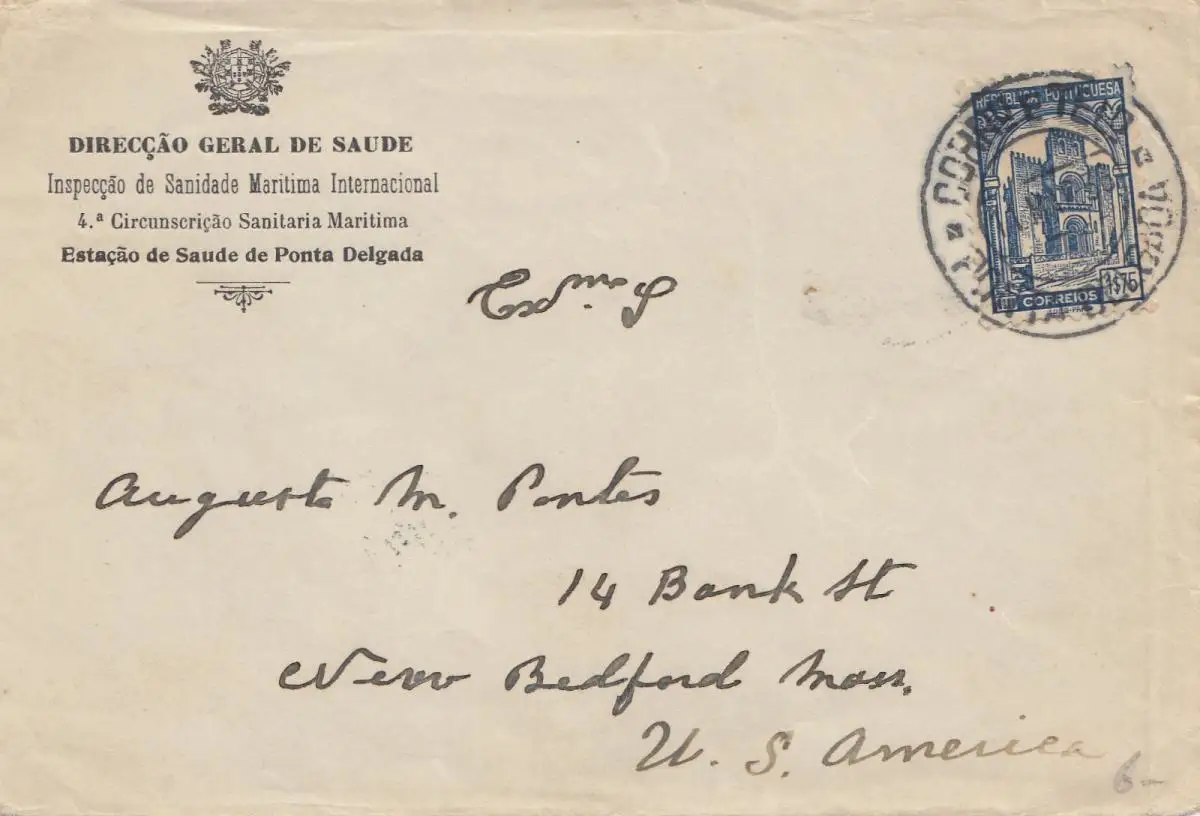 DIRECÇÃO GERAL DE SAUDE
Inspecção de Sanidade Maritima Internacional
4.ª Circunscrição Sanitaria Maritima
Estação de Saude de Ponta Delgada
REPÚBLICA PORTUGUESA
CORREIOS
1$75
Exmo. S
Augusto M. Pontes
14 Bank St
New Bedford Mass.
U. S. America
6-